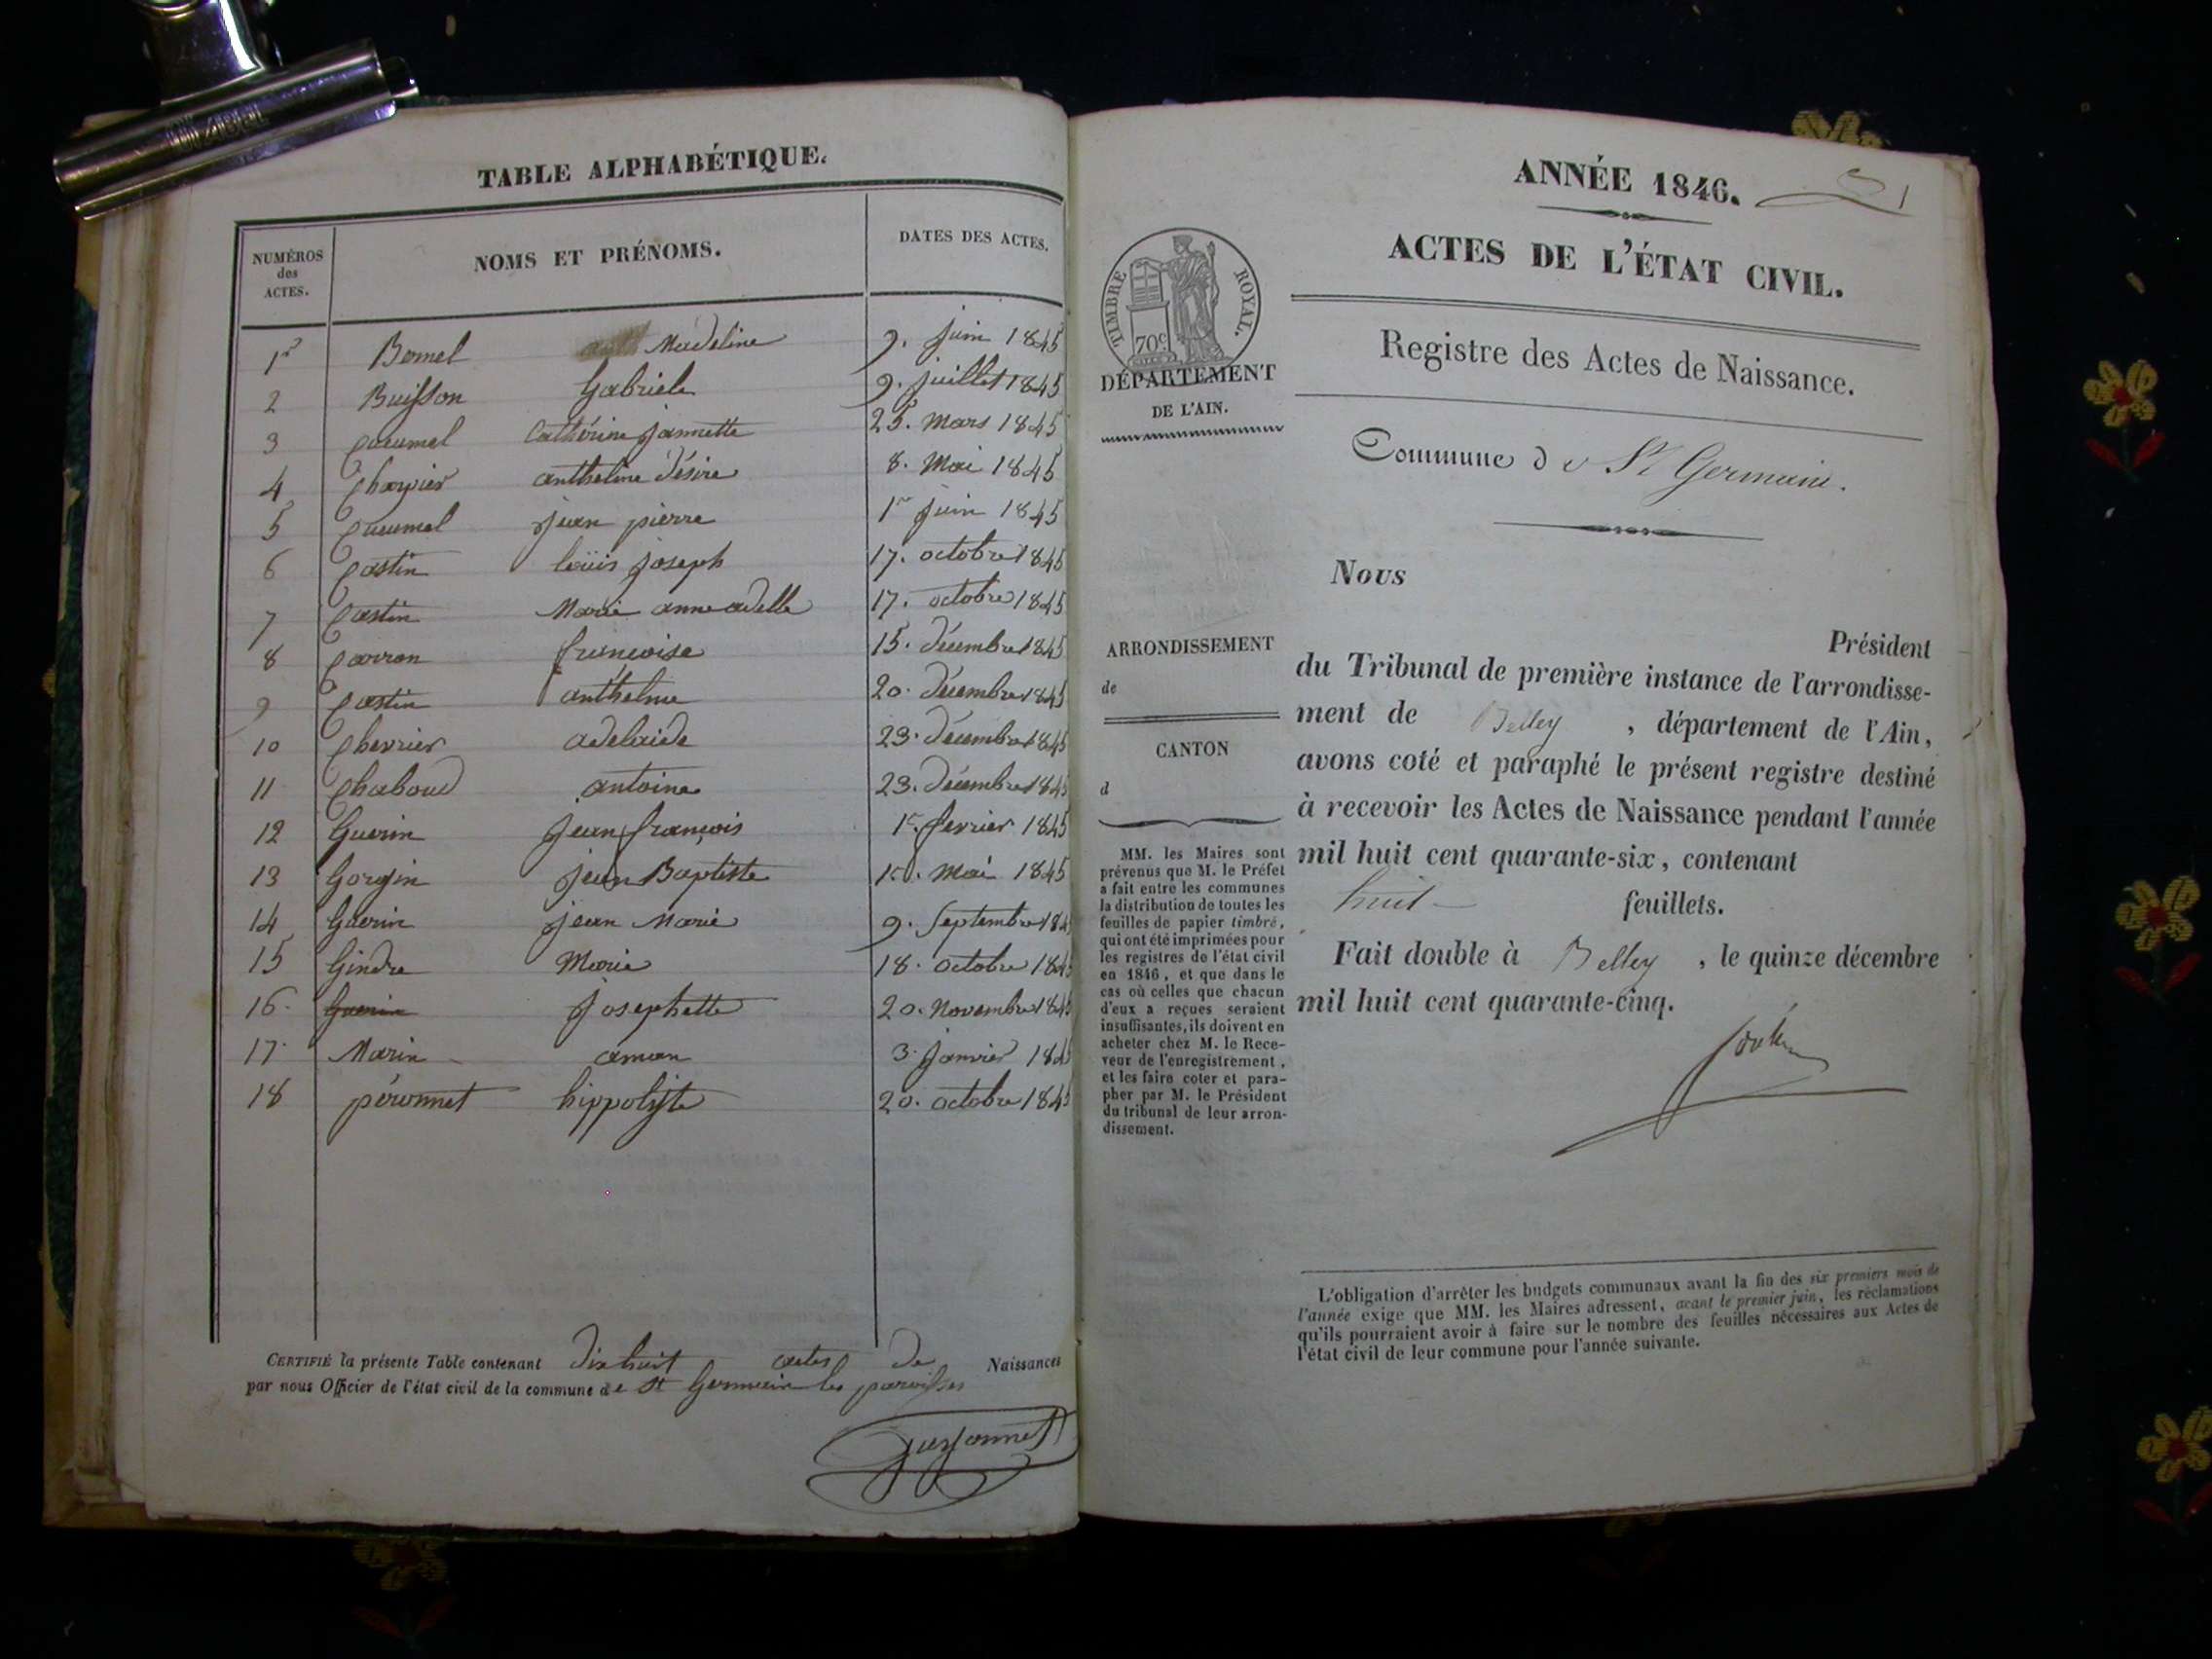 TABLE ALPHABÉTIQUE.
NUMÉROS des ACTES. NOMS ET PRÉNOMS. DATES DES ACTES.
1er Bomel Madeline 9. juin 1845
2 Buisson Gabriele 9. juillet 1845
3 Cucumel Cathérine jannette 25. Mars 1845
4 Charpier anthelme Désire 8. Mai 1845
5 Cucumel jean pierre 1er juin 1845
6 Castin loüis joseph 17. octobre 1845
7 Castin Marie anne adelle 17. octobre 1845
8 Carron francoise 15. décembre 1845
9 Castin anthelme 20. Décembre 1845
10 Chevrier adelaide 23. Décembre 1845
11 Chaboud antoine 23. Décembre 1845
12 Guerin jean françois 1er fevrier 1845
13 Gorgin jean Baptiste Mai 1845
14 Guerin jean Marie 9. Septembre 1845
15 Gindre Marie 18. octobre 1845
16. Guenin josephette 20. Novembre 1845
17 Marin aman 3. janvier 1845
18 péronnet hippolyte 20. octobre 1845
CERTIFIÉ la présente Table contenant Dixhuit actes de Naissances
par nous Officier de l'état civil de la commune de St Germain les paroisses
ANNÉE 1846. 1
ACTES DE L'ÉTAT CIVIL.
TIMBRE ROYAL.
70c
DÉPARTEMENT
DE L'AIN.
Registre des Actes de Naissance.
Commune de St Germain.
Nous
Président
ARRONDISSEMENT
de
du Tribunal de première instance de l'arrondisse-
ment de Belley, département de l'Ain,
avons coté et paraphé le présent registre destiné
à recevoir les Actes de Naissance pendant l'année
mil huit cent quarante-six, contenant
huit feuillets.
Fait double à Belley, le quinze décembre
mil huit cent quarante-cinq.
CANTON
d
MM. les Maires sont
prévenus que M. le Préfet
a fait entre les communes
la distribution de toutes les
feuilles de papier timbré,
qui ont été imprimées pour
les registres de l'état civil
en 1846, et que dans le
cas où celles que chacun
d'eux a reçues seraient
insuffisantes, ils doivent en
acheter chez M. le Rece-
veur de l'enregistrement,
et les faire coter et para-
pher par M. le Président
du tribunal de leur arron-
dissement.
L'obligation d'arrêter les budgets communaux avant la fin des six premiers mois de
l'année exige que MM. les Maires adressent, avant le premier juin, les réclamations
qu'ils pourraient avoir à faire sur le nombre des feuilles nécessaires aux Actes de
l'état civil de leur commune pour l'année suivante.